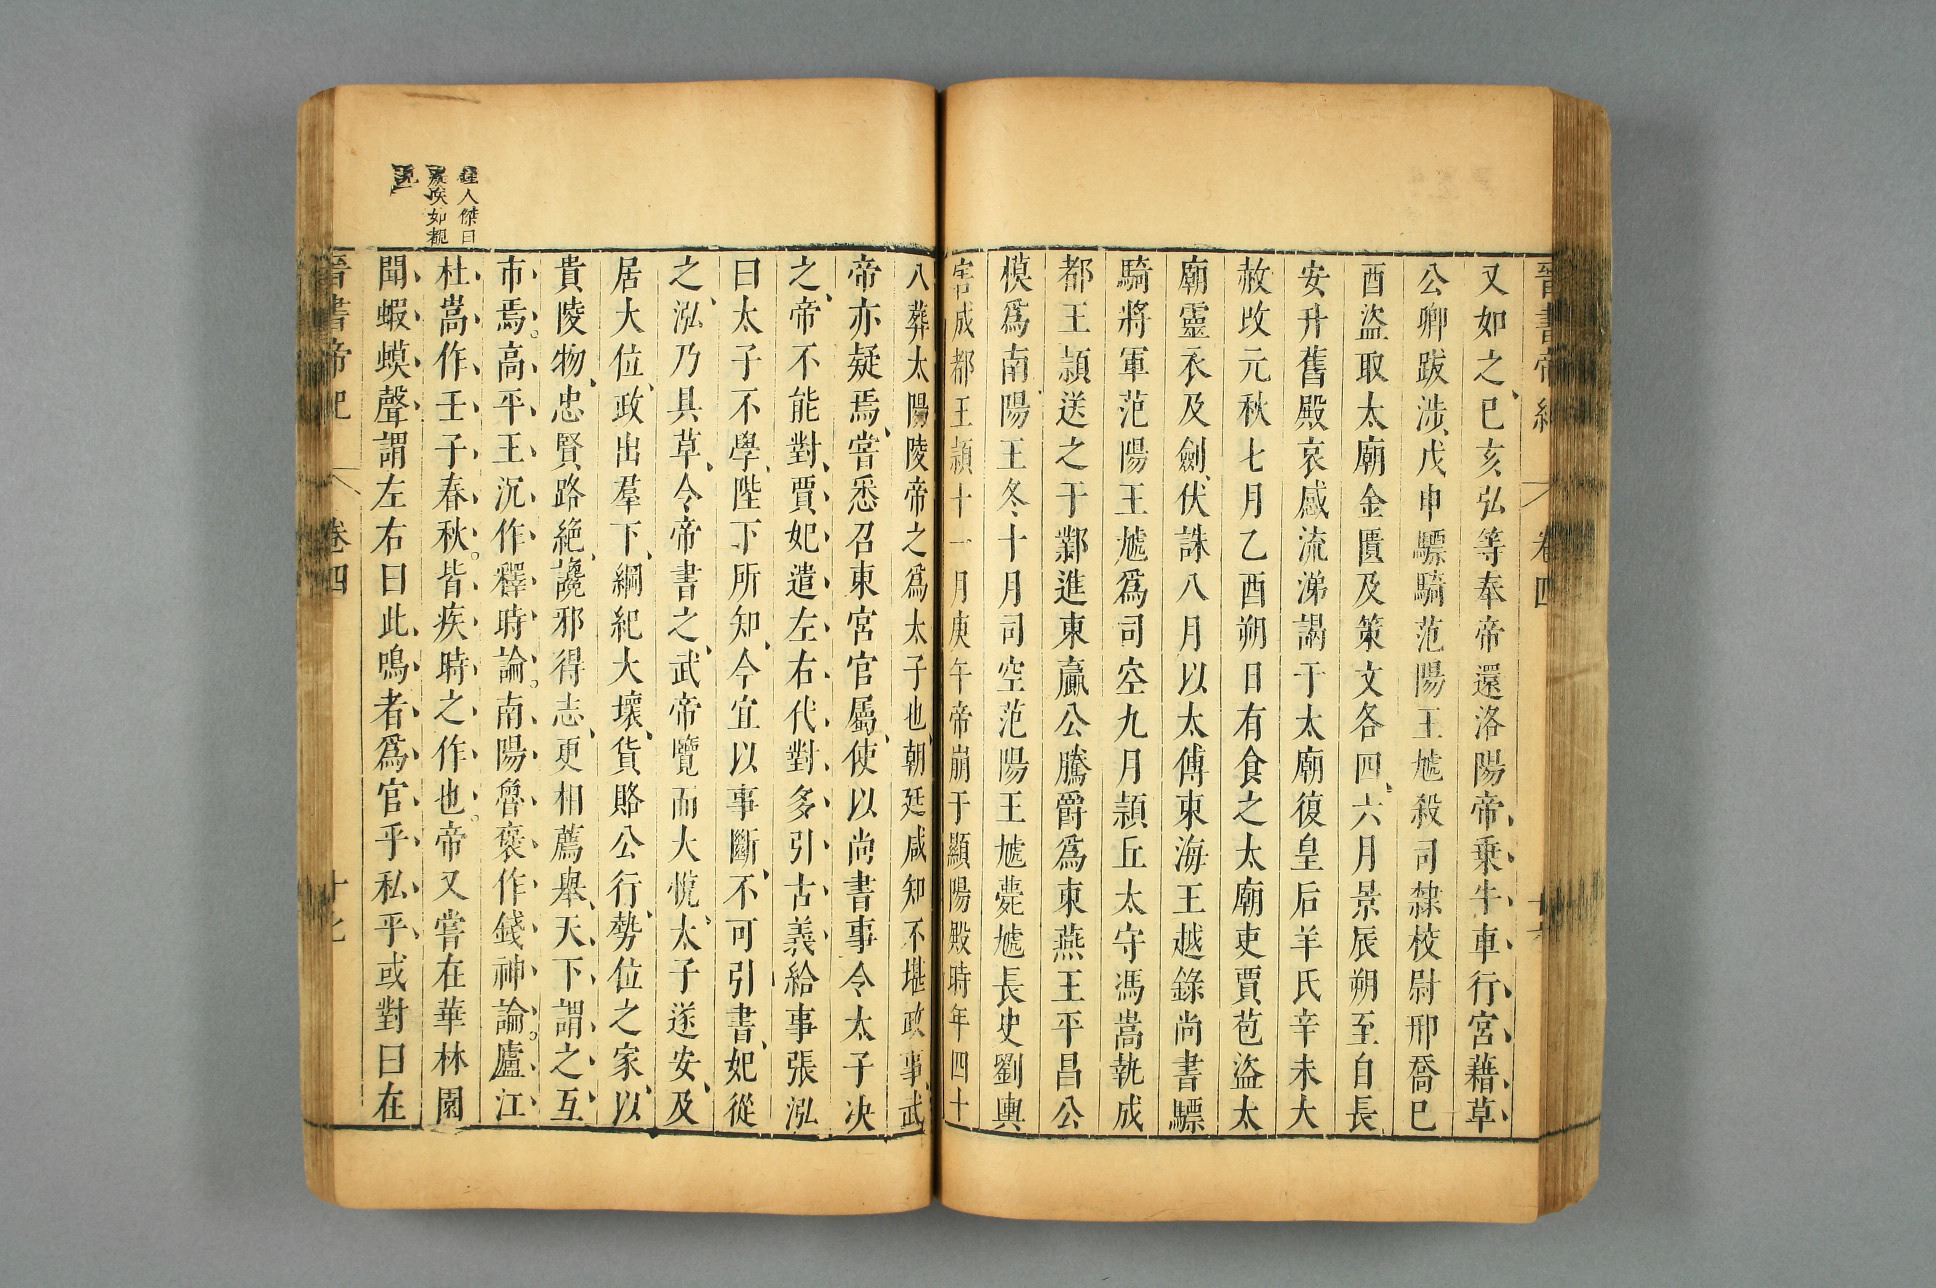 晉書帝紀 卷四
又如之已亥弘等奉帝還洛陽帝乗牛車行宮藉草
公卿跋涉戊申驃騎范陽王虓殺司隸校尉邢喬巳
酉盜取太廟金匱及策文各四六月景辰朔至自長
安升舊殿哀感流涕謁于太廟復皇后羊氏辛未大
赦改元秋七月乙酉朔日有食之太廟吏賈苞盜太
廟靈衣及劍伏誅八月以太傅東海王越錄尚書驃
騎將軍范陽王虓爲司空九月頴丘太守馮嵩執成
都王頴送之于鄴進東嬴公騰爵爲東燕王平昌公
模爲南陽王冬十月司空范陽王虓薨虓長史劉輿
害成都王頴十一月庚午帝崩于顯陽殿時年四十
八葬太陽陵帝之爲太子也朝廷咸知不堪政事武
帝亦疑焉嘗悉召東宮官屬使以尚書事令太子决
之帝不能對賈妃遣左右代對多引古義給事張泓
曰太子不學陛下所知今宜以事斷不可引書妃從
之泓乃具草令帝書之武帝覽而大恱太子遂安及
居大位政出羣下綱紀大壞貨賂公行勢位之家以
貴陵物忠賢路絶讒邪得志更相薦舉天下謂之互
市焉高平王沉作釋時論南陽魯褒作錢神論廬江
杜嵩作壬子春秋皆疾時之作也帝又嘗在華林園
聞蝦蟆聲謂左右曰此鳴者爲官乎私乎或對曰在
人傑曰
如覩
晉書帝紀 卷四 十七